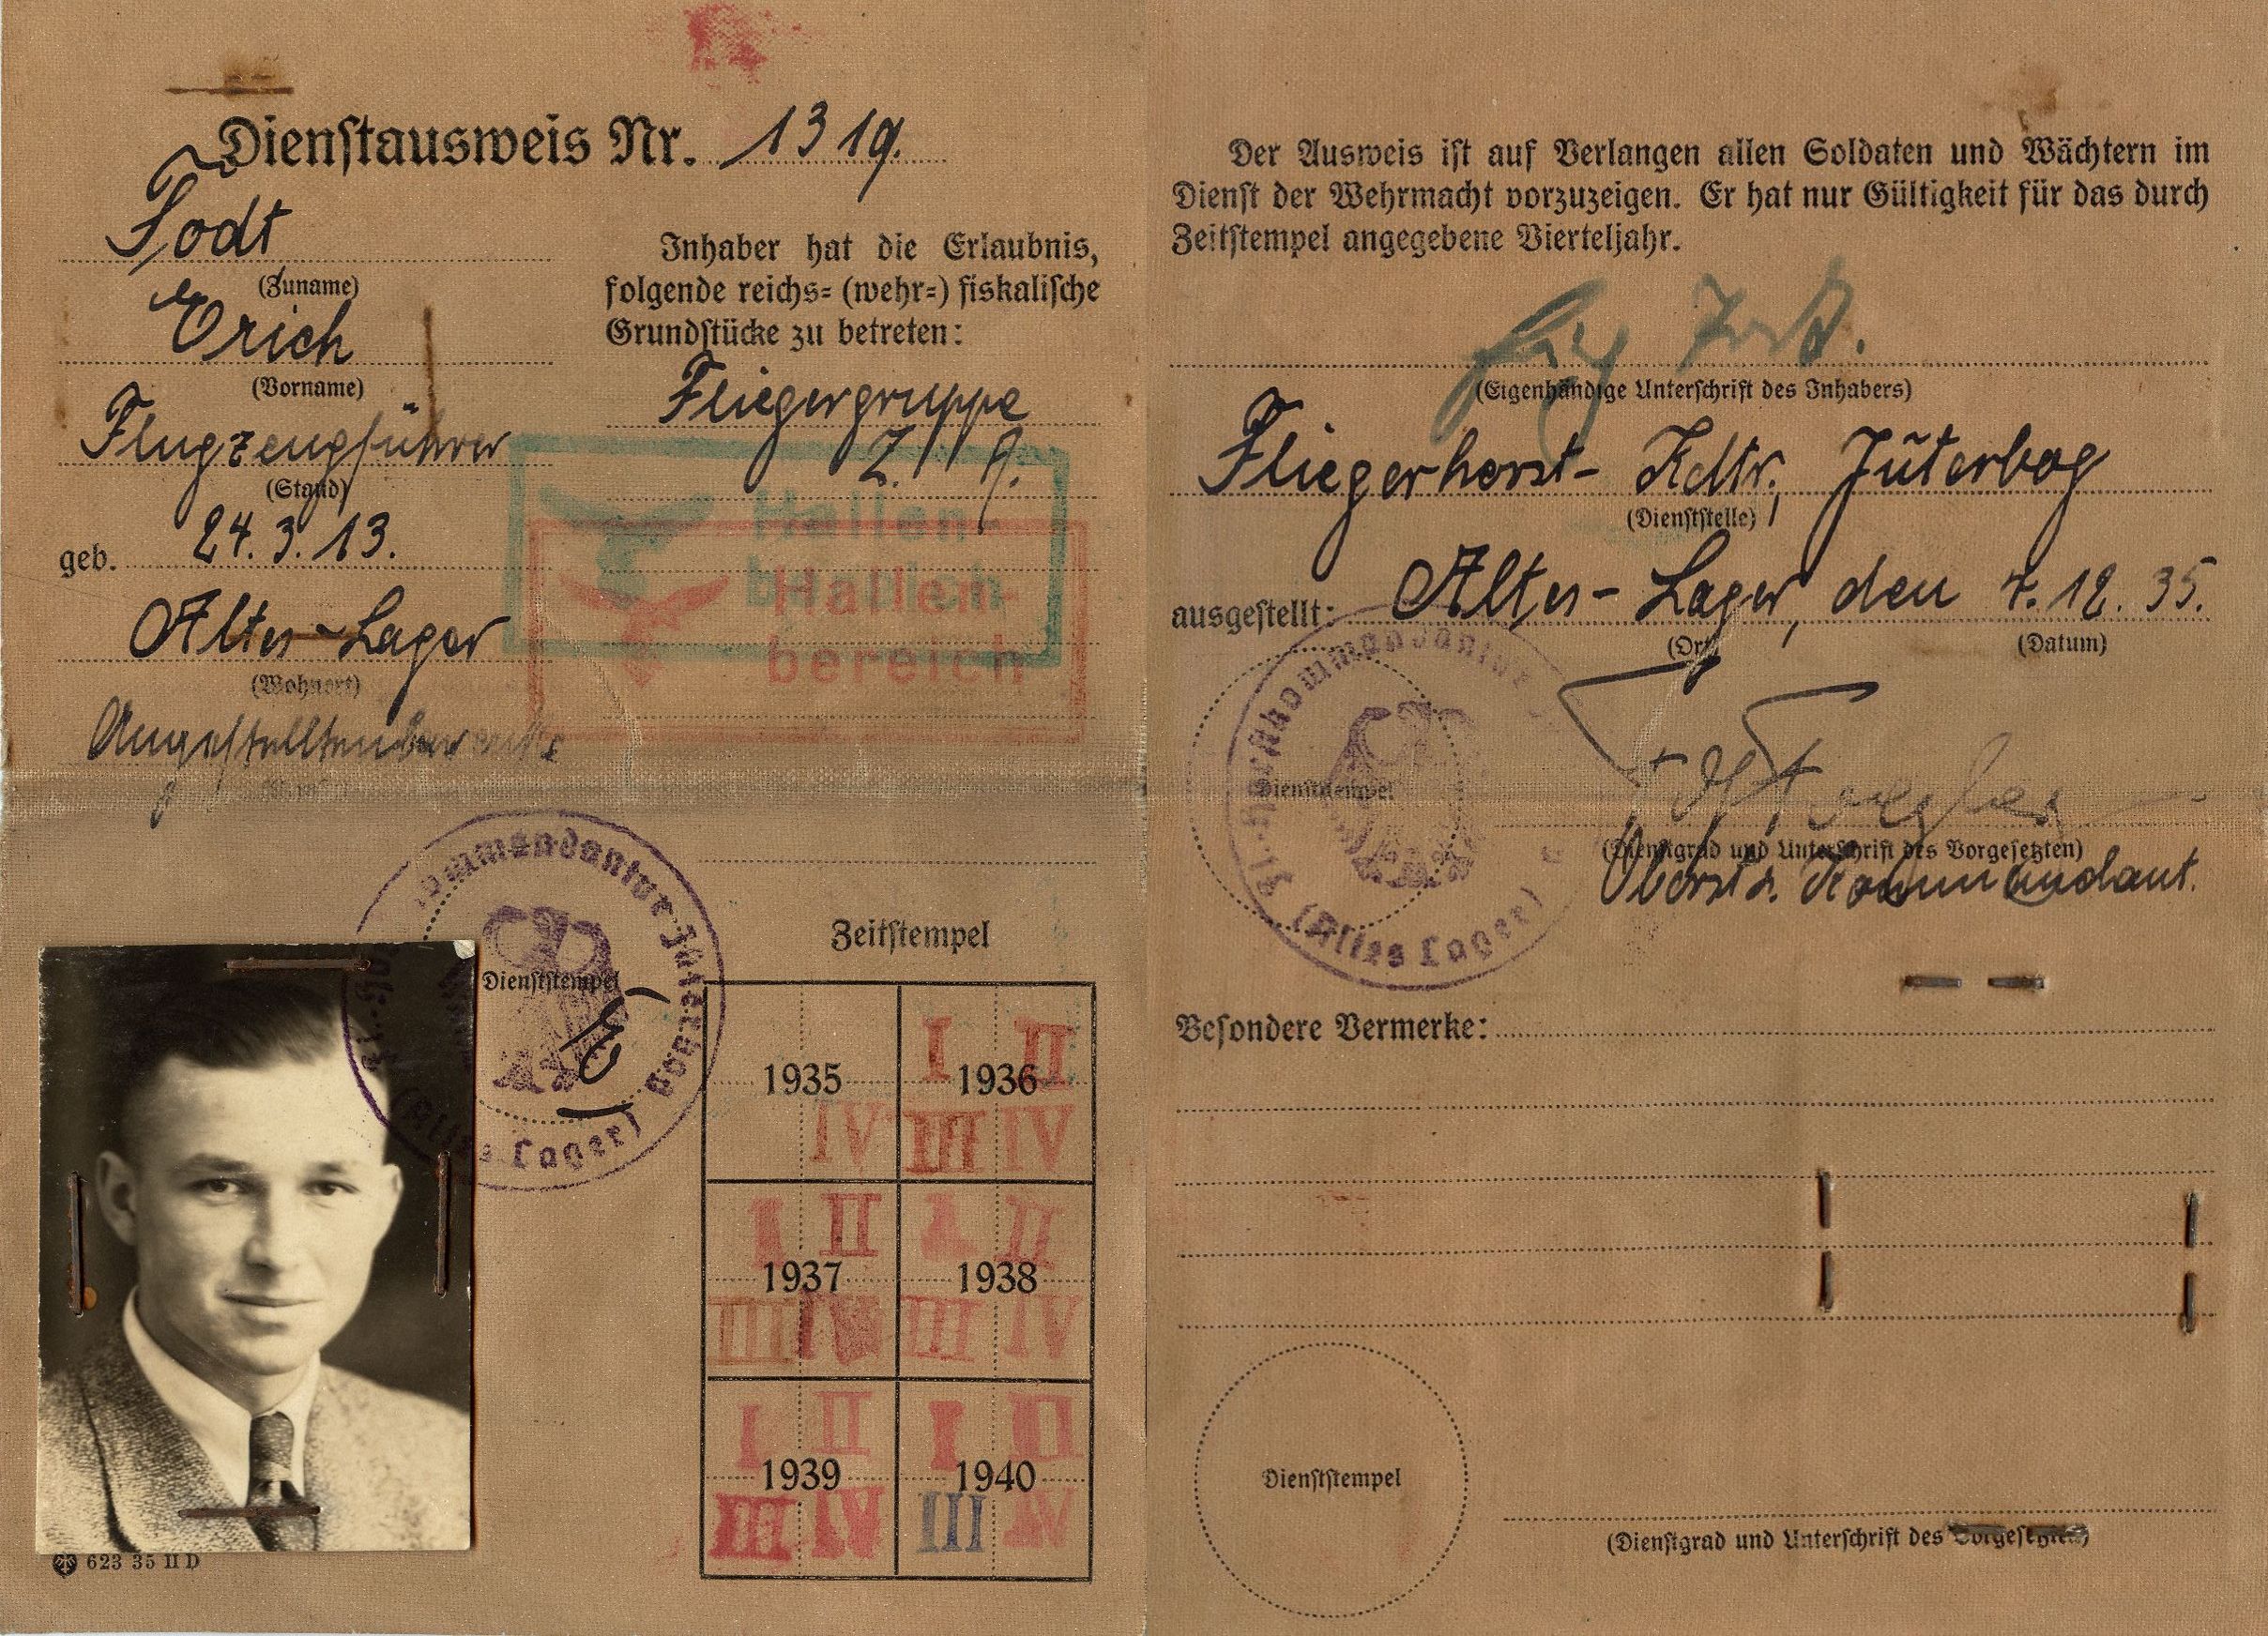 Dienstausweis Nr. 1319.
Todt
(Zuname)
Erich
(Vorname)
Flugzeugführer
(Stand)
geb. 24.3.13.
Altes-Lager
(Wohnort)
Inhaber hat die Erlaubnis,
folgende reichs- (wehr-) fiskalische
Grundstücke zu betreten:
Fliegergruppe
Hallen-
bereich
Hallen-
bereich
Dienststempel
(Altes Lager)
Zeitstempel
1935
IV
1936
I II
III IV
1937
I II
III IV
1938
I II
III IV
1939
I II
III IV
1940
I II
III IV
623 35 II D
Der Ausweis ist auf Verlangen allen Soldaten und Wächtern im
Dienst der Wehrmacht vorzuzeigen. Er hat nur Gültigkeit für das durch
Zeitstempel angegebene Vierteljahr.
(Eigenhändige Unterschrift des Inhabers)
Fliegerhorst- Kdtr. Jüterbog
(Dienststelle)
ausgestellt: Altes-Lager, den 7.12.35.
(Ort) (Datum)
Dienststempel
(Altes Lager)
(Dienstgrad und Unterschrift des Vorgesetzten)
Oberst u. Kommandant.
Besondere Vermerke:
Dienststempel
(Dienstgrad und Unterschrift des Vorgesetzten)